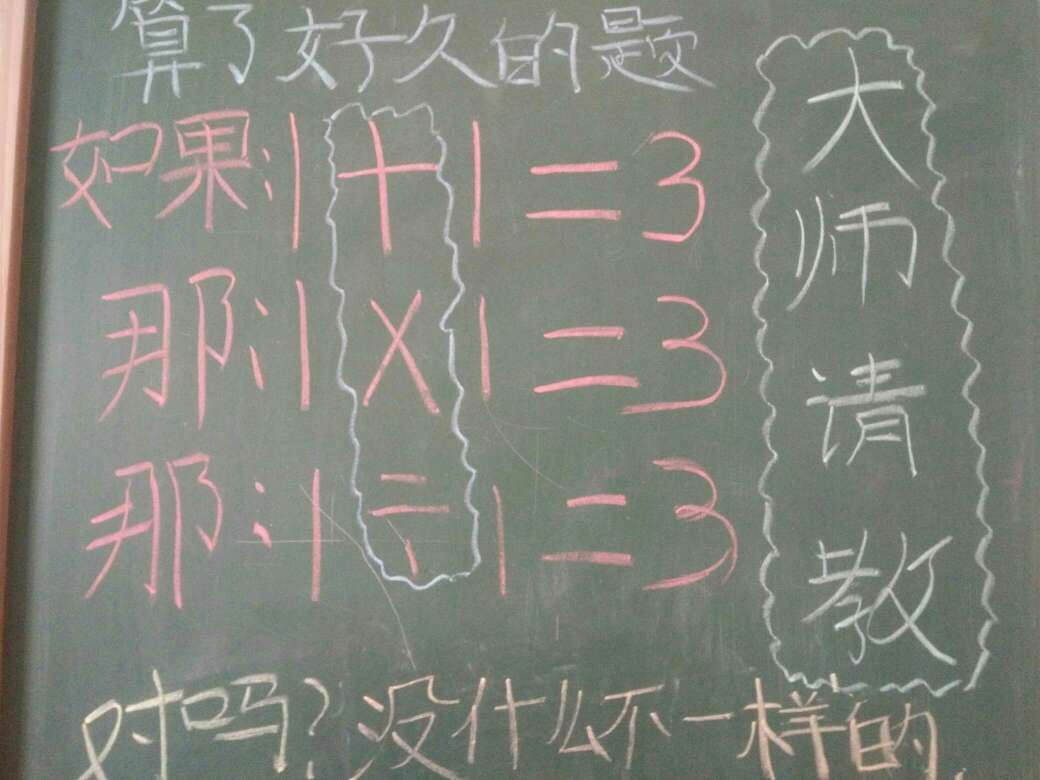 算了好久的题
如果:1+1=3
那:1×1=3
那:1÷1=3
对吗?没什么不一样的
大师请教